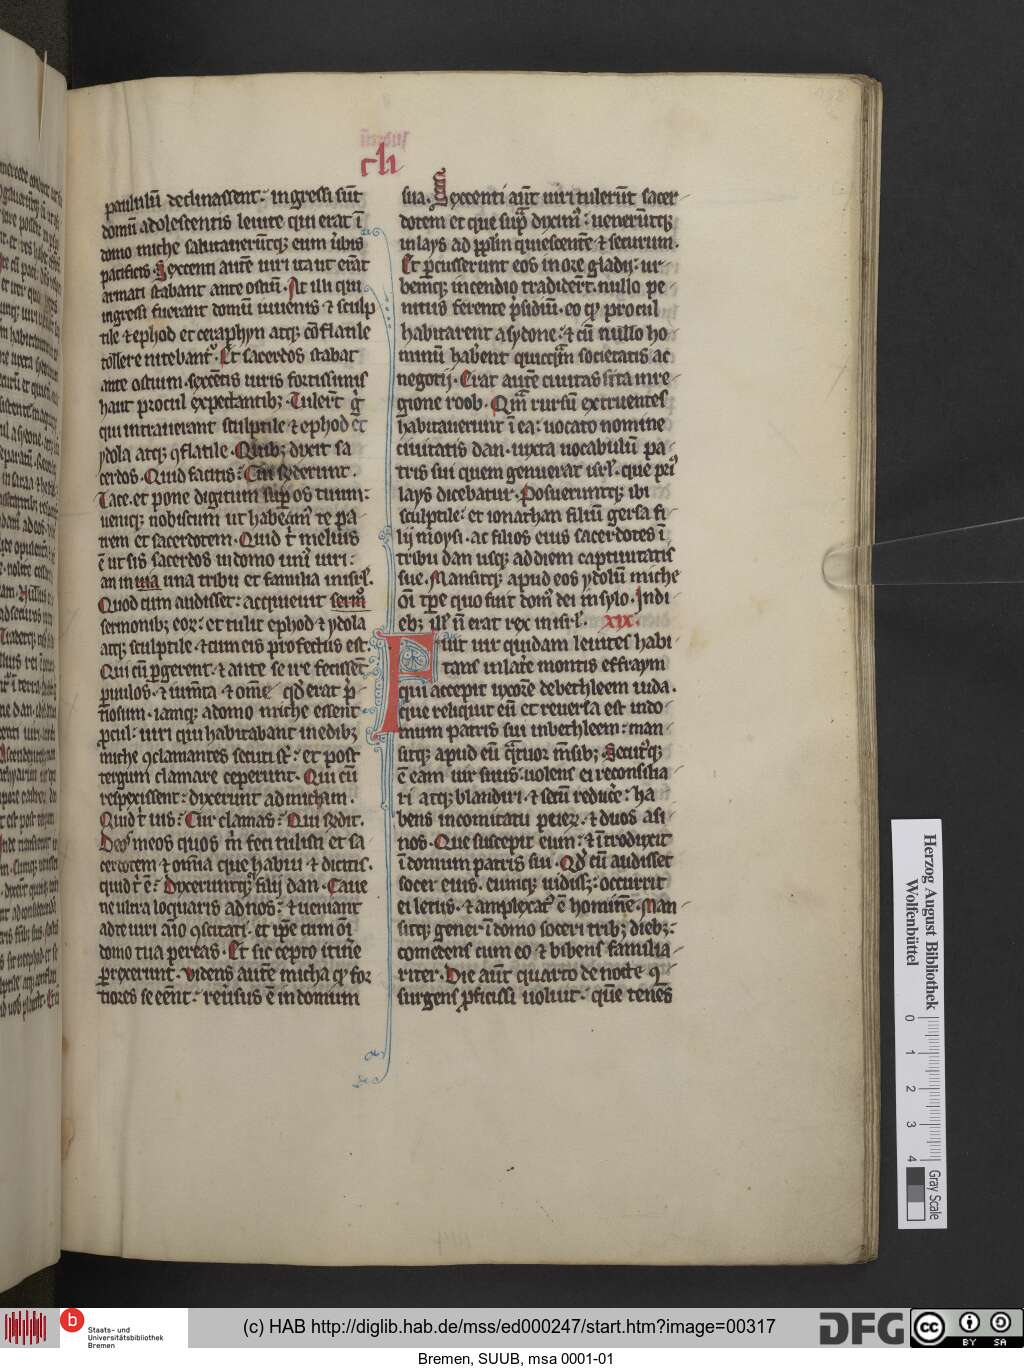 clı
paululū declinassent. ingressi sūt
domū adolescentis leuite qui erat ī
domo miche salutauerūtqꝫ eum ubis
pacificis. Sexcenti autē uiri ita ut erāt
armati stabant ante ostiū. At illi qui
ingressi fuerant domū iuuenis ⁊ sculp
tile ⁊ ephod et ceraphyn atqꝫ cōflatile
tollere nitebant. Et sacerdos stabat
ante ostium. sexcētis uiris fortissimis
haut procul expectantibꝫ. Tulert̄ g̊
qui intrauerant sculptile ⁊ ephod et
ydola atqꝫ ꝯflatile. Quibꝫ dixit sa
cerdos. Quid facitis: Cui rn̄derunt.
Tace. et pone digitum sup̄ os tuum:
ueniqꝫ nobiscum ut habeamꝰ te pa
trem et sacerdotem. Quid t̄ melius
ē ut sis sacerdos in domo unıꝰ uiri:
an in una tribu et familia in isrl̄.
Quod cum audisset: acquieuit
sermonibꝫ eoꝝ: et tulit ephod ⁊ ydola
atqꝫ sculptile. ⁊ cum eis profectus est.
Qui cū ꝑgerent. ⁊ ante se ire fecisset
ꝑuulos. ⁊ iumta ⁊ omē qd̄ erat p̄
tiosum. iamqꝫ a domo miche essent
ꝓcul: uiri qui habitabant in edibꝫ
miche ꝯclamantes secuti st̄: et post
tergum clamare ceperunt. Qui cū
respexissent: dixerunt ad micham.
Quid t̄ uis: Cur clamas: Qui rn̄dit.
Deos meos quos m̄ feci tulisti et sa
cerdotem ⁊ omīa que habui ⁊ dicitis.
quid t̄ ē: Dixeruntqꝫ filij dan. Caue
ne ultra loquaris ad nos: ⁊ ueniant
ad te uiri aīo ꝯcitati. et ip̄e cum oı̄
domo tua pereas. Et sic cepto itinē
ꝑrexerunt. Videns autē micha ꝙ for
tiores se eēnt: reuisus ē in domum
sua. Sexcenti aūt uiri tulerūt sacer
dotem et que sup̄ diximꝰ: uenerūtqꝫ
in lays ad ꝓplm̄ quiescentē ⁊ securum.
Et percusserunt eos in ore gladij: ur
bemqꝫ incendio tradidert̄. nullo pe
nitus ferente p̄sidiū. eo ꝙ procul
habitarent a sydone: ⁊ cū nullo ho
minū habent quicqͣm societatis ac
negotij. Erat autē ciuitas sita in re
gione roob. Qm̄ rursū extruentes
habitauerunt ī ea: uocato nomine
ciuitatis dan. iuxta uocabulū pa
tris sui quem genuerat isrl̄. que pͥꝰ
lays dicebatur. Posueruntqꝫ ibi
sculptile: et ionathan filiū gersa fi
lij moysi. ac filios eius sacerdotes ī
tribu dan usqꝫ ad diem captiuitatis
sue. Mansitqꝫ apud eos ydolū miche
oı̄ tp̄e quo fuit domꝰ dei in sylo. Indi
ebꝫ ill̄ n̄ erat rex in isrl̄. xix.
Fuit uir quidam leuites habi
tans in lat̄e montis effraym
qui accepit uxorē de bethleem iuda.
que reliquit eū et reuersa est in do
mum patris sui in bethleem: man
sitqꝫ apud eū qͣtuor m̄sibꝫ. Secutꝰqꝫ
ē eam uir suus. uolens ei reconsilia
ri atqꝫ blandiri. ⁊ secū reducē: ha
bens in comitatu pueꝝ. ⁊ duos asi
nos. Que suscepit eum: ⁊ ītroduxit
ī domum patris sui. Qd̄ cū audisset
socer eius. eumqꝫ uidissꝫ: occurrit
ei letus. ⁊ amplexatꝰ ē hominē. Man
sitqꝫ gener ī domo soceri tribꝫ diebꝫ:
comedens cum eo ⁊ bibens familia
riter. Die aūt quarto de nocte ꝯ
surgens ꝓficisci uoluit. quē tenēs
Herzog August Bibliothek
Wolfenbüttel
0 1 2 3 4
Gray Scale
b
Staats- und
Universitätsbibliothek
Bremen
(c) HAB http://diglib.hab.de/mss/ed000247/start.htm?image=00317
DFG
cc BY SA
Bremen, SUUB, msa 0001-01